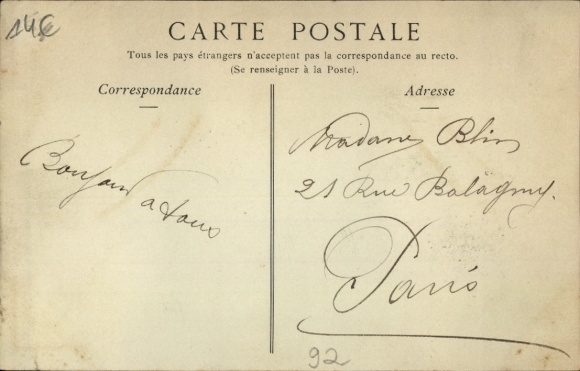 14€
CARTE POSTALE
Tous les pays étrangers n'acceptent pas la correspondance au recto.
(Se renseigner à la Poste).
Correspondance
Bonjour
a tous
Adresse
Madame Blin
21 Rue Balagny.
Paris
92